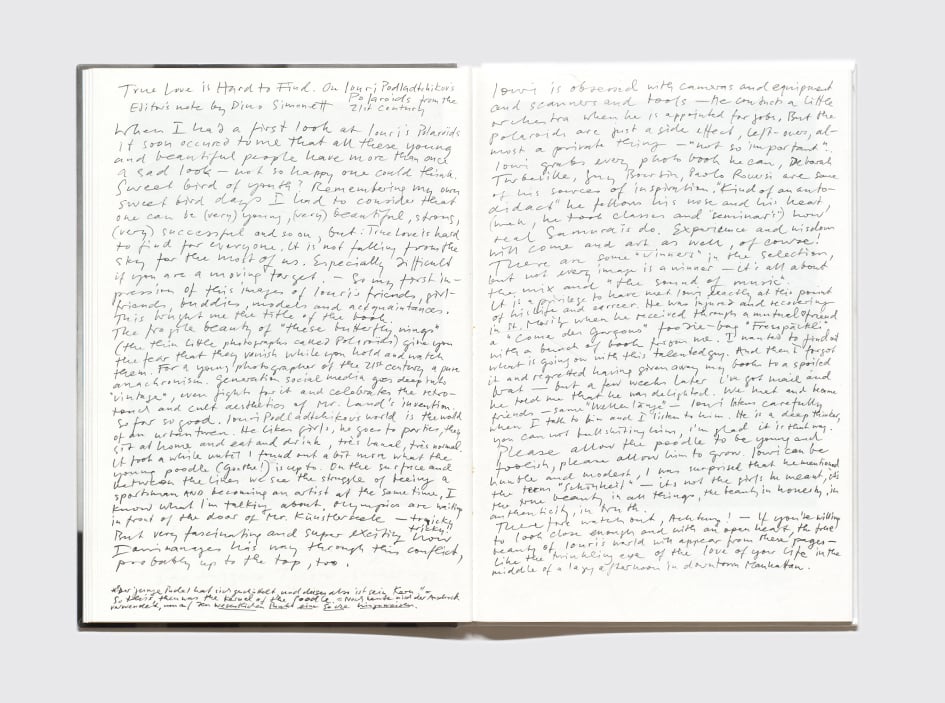 True Love is Hard to Find. On Iouri Podladtchikovs
Polaroids from the
Editors note by Dino Simonett 21st Century
When I had a first look at Iouri's Polaroids
it soon occured to me that all these young
and beautiful people have more than once
a sad look – not so happy one could think.
Sweet bird of youth? Remembering my own
sweet bird days I had to consider that
one can be (very) young, (very) beautiful, strong,
(very) successful and so on, but: True love is hard
to find for everyone. It is not falling from the
sky for the most of us. Especially difficult
if you are a moving target. – So my first im-
pression of this images of Iouri's friends, girl-
friends, buddies, models and acquaintances.
This brought me the title of the book.
The fragile beauty of "these butterfly wings"
(the thin little photographs called Polaroids) give you
the fear that they vanish while you hold and watch
them. For a young photographer of the 21st century a pure
anachronism. Generation social media goes deep into
"vintage", even fights for it and celebrates the retro-
touch and cult aesthetics of Mr. Land's invention.
So far so good. Iouri Podladtchikovs world is the world
of an urban tween. He likes girls, he goes to parties, they
sit at home and eat and drink, très banal, très normal.
It took a while until I found out a bit more what the
young poodle (Goethe!) is up to. On the surface and
between the lines we see the struggle of being a
sportsman AND becoming an artist at the same time. I
know what I'm talking about. Olympics are waiting
in front of the door of Mr. Künstlerseele – tragick!!
tricky!!
But very fascinating and super exciting how
I am manages his way through this conflict,
probably up to the top, too.
So this, then, was the kernel of the poodle
Iouri is obsessed with cameras and equipment
and scanners and tools – He conducts a little
orchestra when he is appointed for jobs. But the
polaroids are just a side effect, left-over, al-
most a private thing – "not so important".
Iouri grabs every photo book he can, Deborah
Turbeville, Guy Bourdin, Paolo Roversi are some
of his sources of inspiration. "Kind of an auto-
didact" he follows his nose and his heart,
(meh, he took classes and "seminars") how
real Samurais do. Experience and wisdom
will come and art as well, of course!
There are some "winners" in the selection,
but not every image is a winner – it's all about
the mix and "the sound of music".
It is a privilege to have met Iouri exactly at this point
of his life and career. He was injured and recovering
in St. Moritz when he received through a mutual friend
a "Come des Garçons" foodie-bag "Fresspäckli"
with a bunch of books from me. I wanted to find out
what is going on with this talented guy. And then I forgot
it and regretted having given away my book to a spoiled
brat – but a few weeks later I've got mail and
he told me that he was delighted. We met and became
friends – same "Wellenlänge" – Iouri listens carefully
when I talk to him and I listen to him. He is a deep thinker,
you can not bullshitting him, I'm glad it is that way.
Please allow the poodle to be young and
foolish, please allow him to grow. Iouri can be
humble and modest. I was surprised that he mentioned
the term "Schönheit" – it's not the girls he meant, it's
the true beauty in all things, the beauty in honesty, in
authenticity, in truth.
Therefore watch out, Achtung! – If you're willing
to look close enough and with an open heart, the true
beauty of Iouris world will appear from these pages –
like the twinkling eye of the love of your life in the
middle of a lazy afternoon in downtown Manhattan.